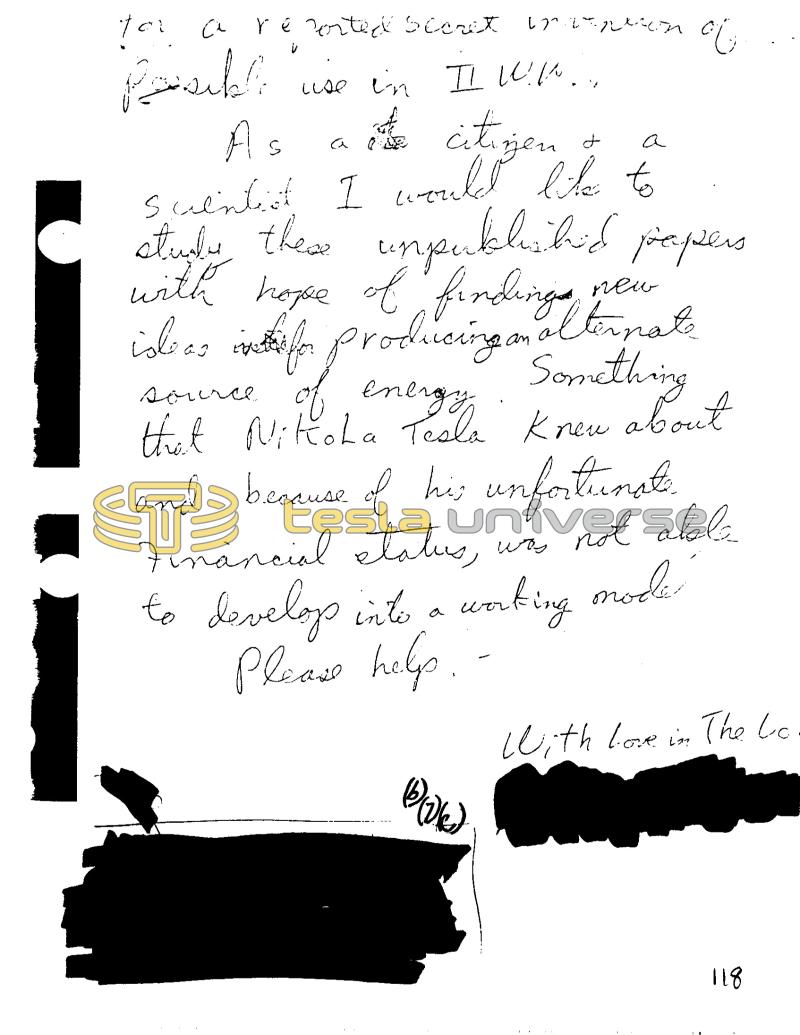 for a reported secret invention of
possible use in II W.W..
As a citizen & a
scientist I would like to
study these unpublished papers
with hope of finding new
ideas for producing an alternate
source of energy. Something
that NiKoLa Tesla Knew about
and because of his unfortunate
tesla universe
Financial status, was not able
to develop into a working model
Please help. -
With Love in The Lo
(b)
(7)(c)
118